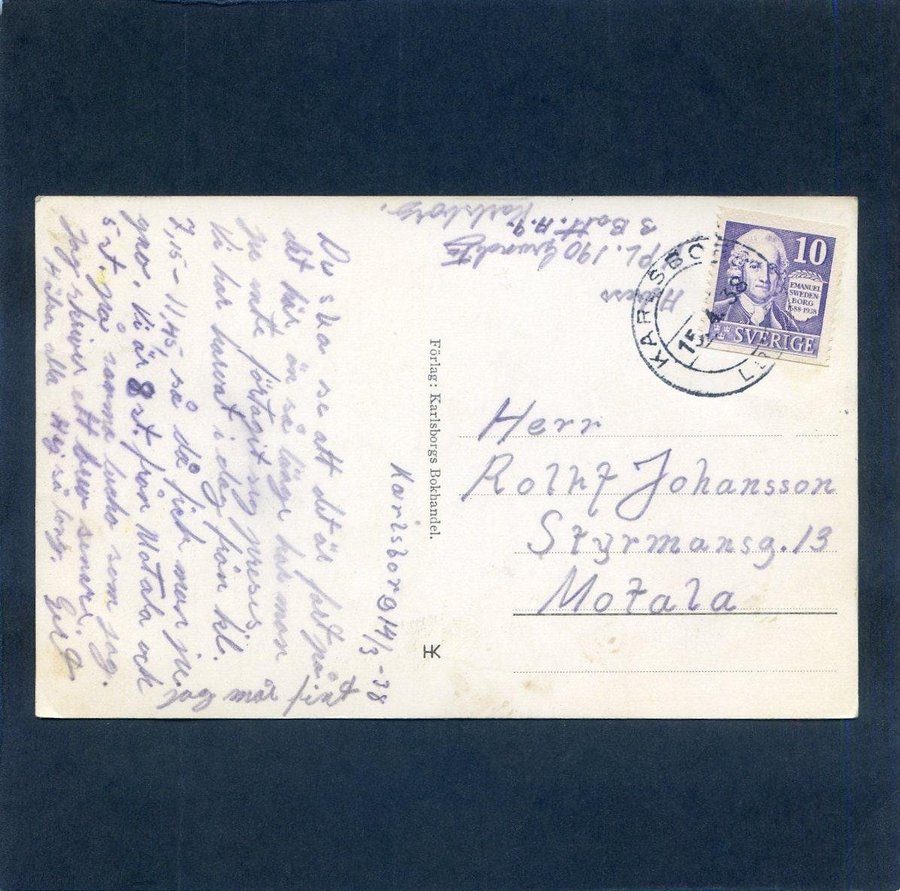 Karlsborg 14/3-38
Du ska se att det är fart på
det här än så länge har man
ju inte förtagit sig precis
Vi har havat i dag från kl.
7,15-11,45 så då fick man ju.
gno. Vi är 8 st. från Motala och
5 st på samma lucho som jag.
Jag skriver ett brev senare.
Hälsa alla Hej så long.
Jag mår fint
Förlag: Karlsborgs Bokhandel.
HK
Adress
PL. 190
3 Batt. A.9.
Karlsborg.
KARLSBORG
15.4.38
10
EMANUEL
SWEDEN
BORG
1688-1938
SVERIGE
Herr
Rolf Johansson
Styrmansg.13
Motala